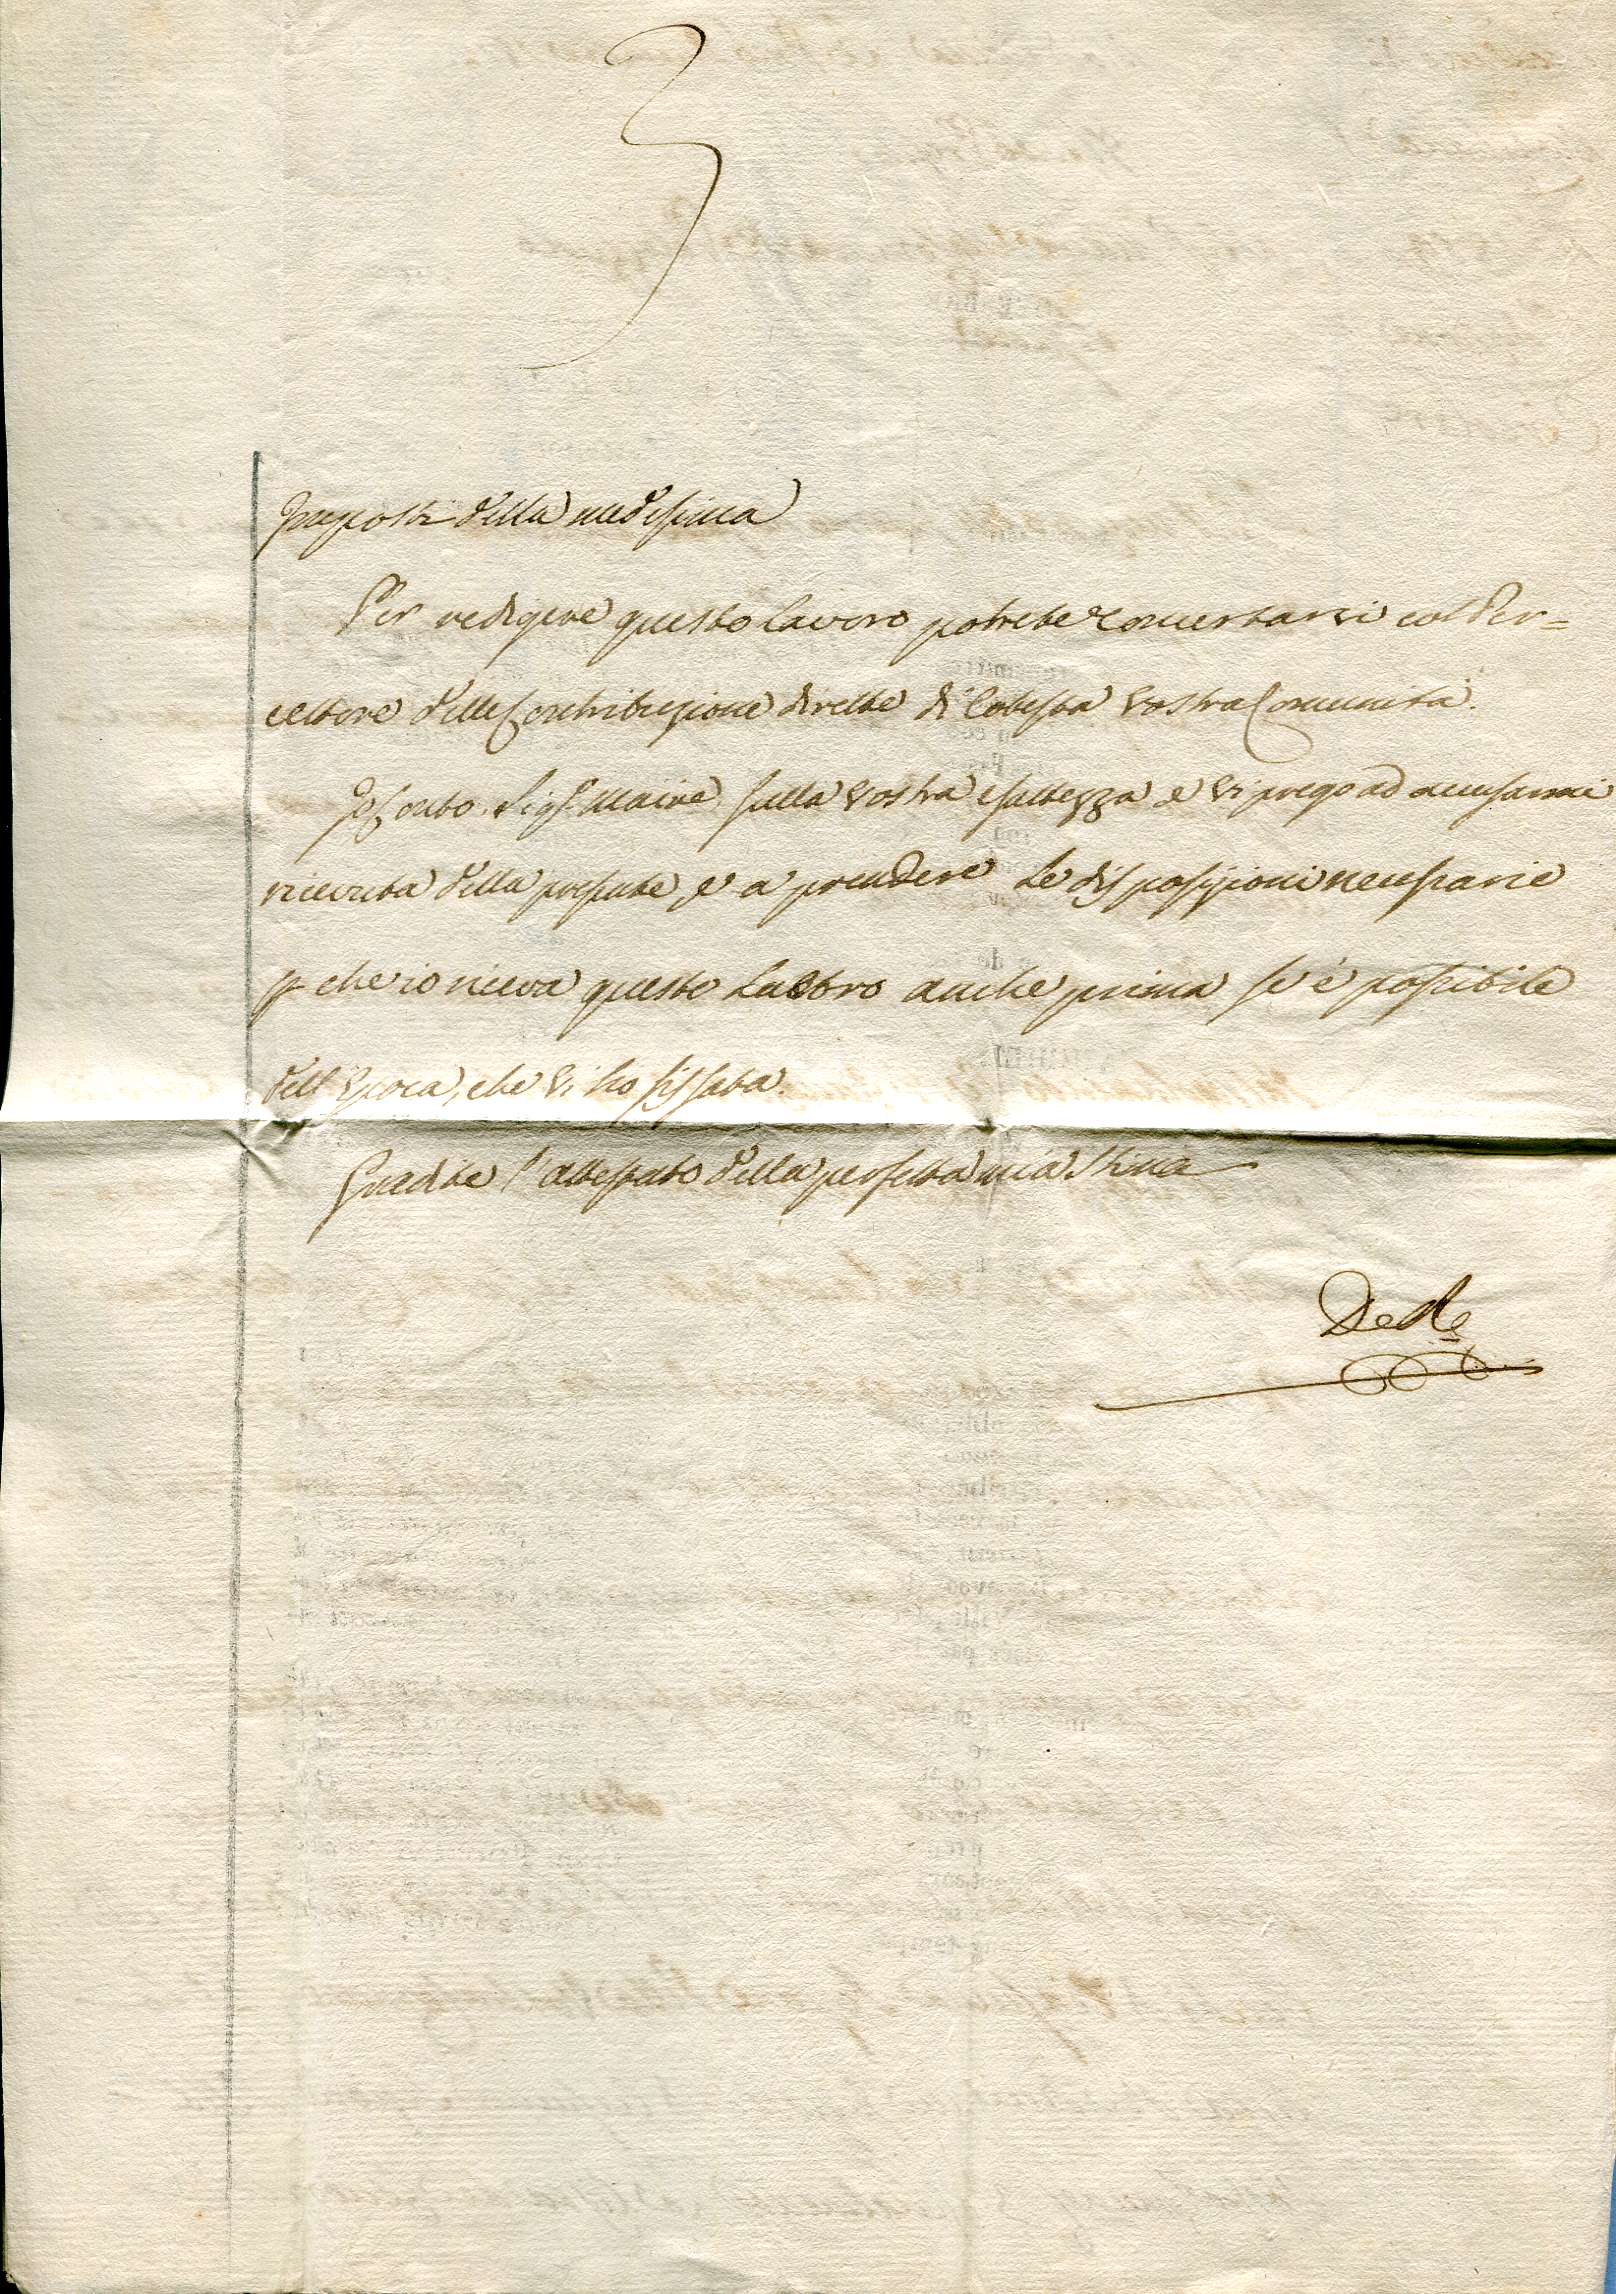 3
preposti della medesima
Per redigere questo lavoro potrete concertarvi col Per=
cettore delle Contribuzione dirette di Cotesta vostra Comunità.
Io Conto, Sigr Maire, sulla vostra esattezza e vi prego ad accusarmi
ricevuta della presente, e a prendere le disposizioni necessarie
che io riceva questo anche prima se è possibile
dell'Epoca, che vi ho fissata.
Gradite l'attestato della perfetta mia Stima